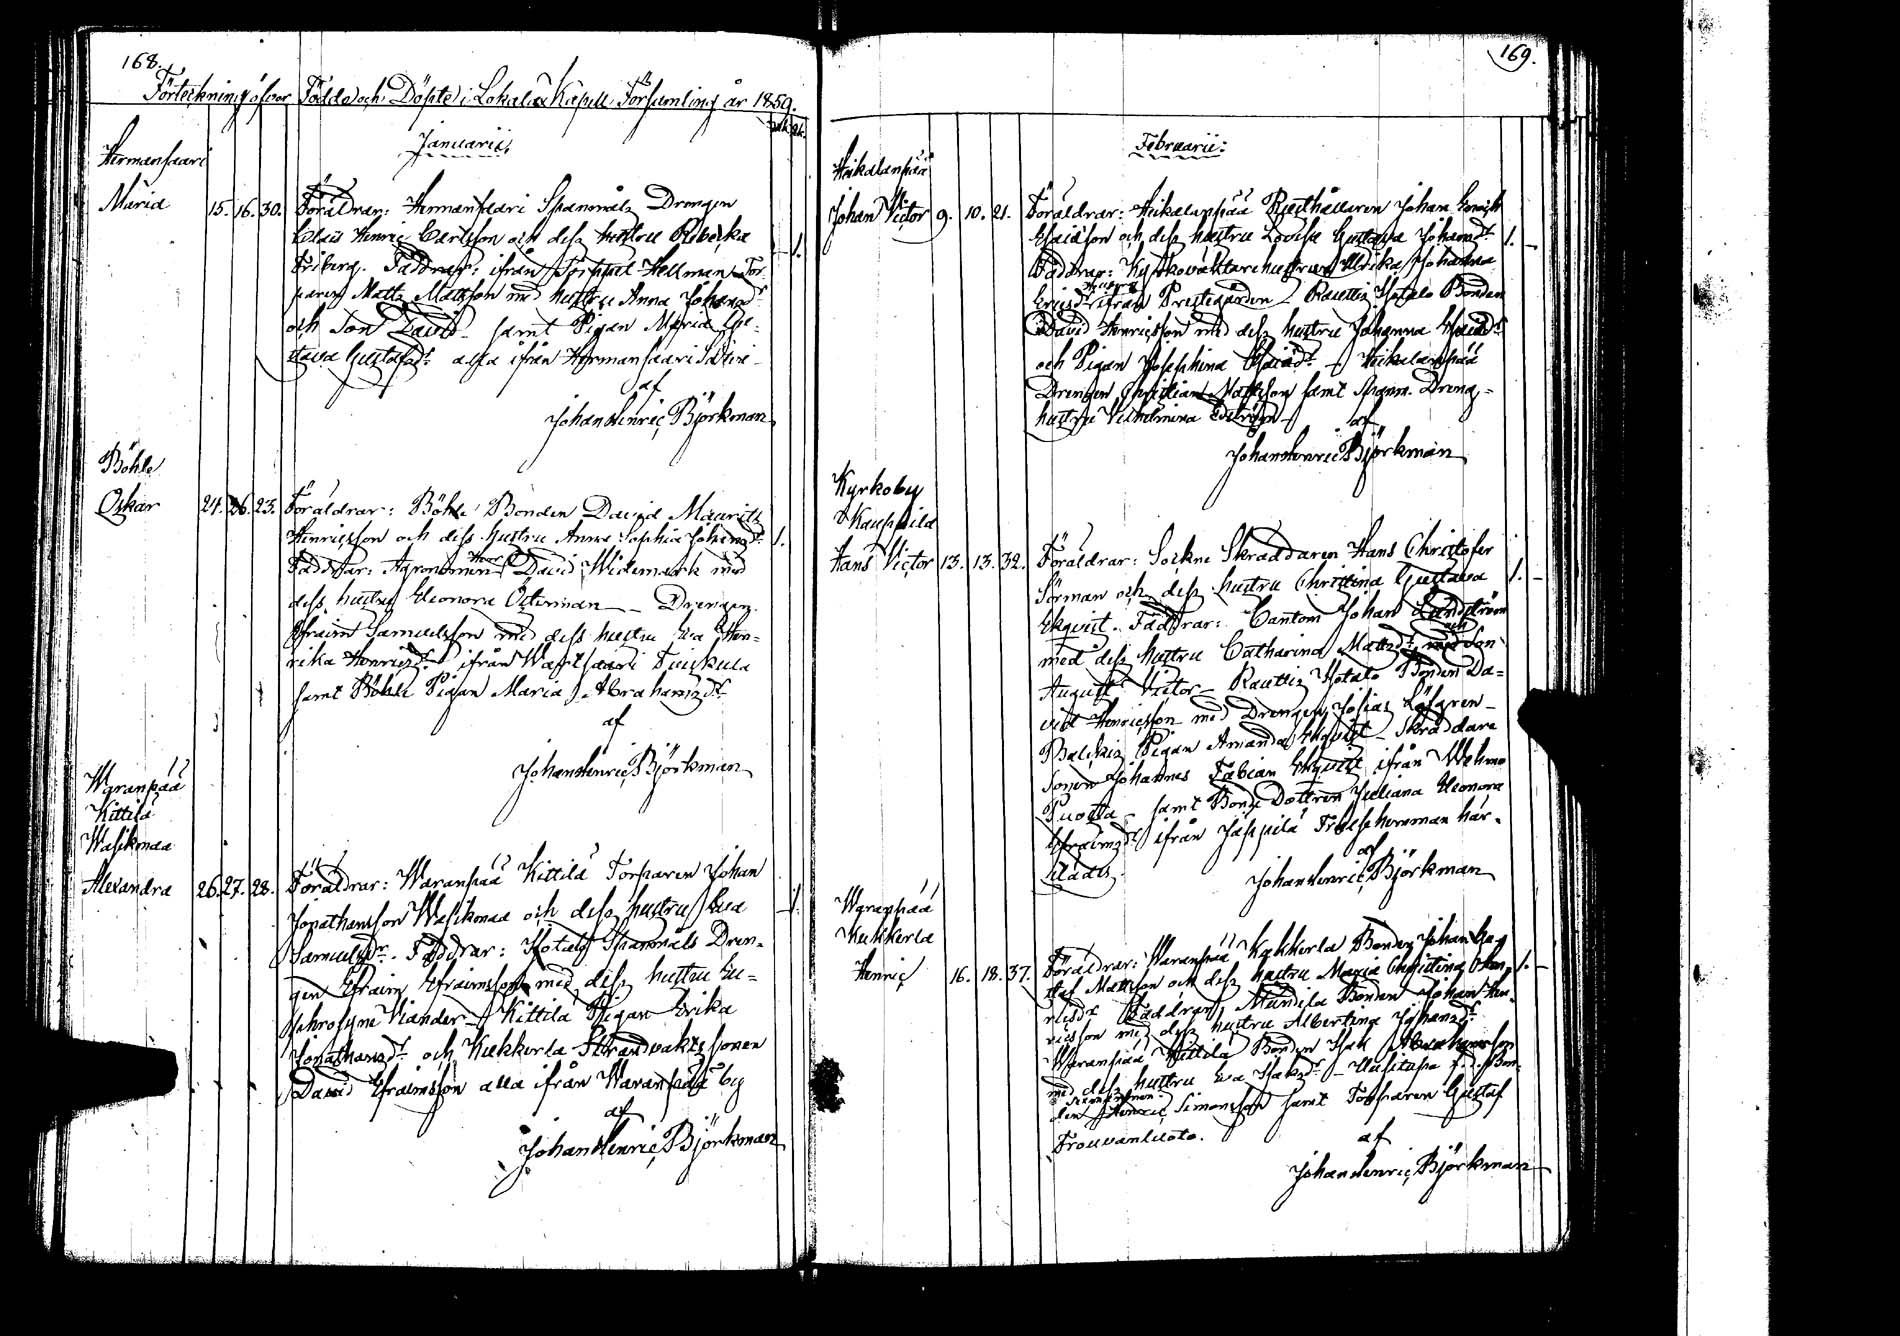 168.
Förteckning öfver Födde och Döpte i Lokalax Kapell Församling år 1859.
Januarii.
Hermansaari
Maria 15. 16. 30. Föräldrar: Hermansaari Spanmåls Drengen
Claës Henric Carlsson och dess hustru Rebecka 1.
Friberg. Faddrar: ifrån Torppal Hellman Tor-
paren Matts Mattsson med hustru Anna Johansdr
och Son David samt Pigan Maria Gu-
stava Gustafsdr alla ifrån Hermansaari
af
Johan Henric Björkman
Böhle
Oskar 24. 26. 23. Föräldrar: Böhle Bonden David Maurits
Henricsson och dess hustru Anna Sophia Johansdr 1.
Faddrar: Agronomen Herr David Widemark med
dess hustru Eleonora Österman – Drengen
Efraim Samuelsson med dess hustru Eva Hen-
rika Henricsdr ifrån Wartsaari Tuiskula
samt Böhle Pigan Maria Abrahamsdr
af
Johan Henric Björkman
Waranpää
Kittilä
Wasikmaa
Alexandra 26. 27. 28. Föräldrar: Waranpää Kittilä Torparen Johan
Jonathansson Wasikmaa och dess hustru Eva 1.
Samuelsdr. Faddrar: Hotalo Spanmåls Dren-
gen Efraim Efraimsson med dess hustru Eu-
phrosyne Viander – Kittilä Pigan Erika
Jonathansdr och Kukkerla Strandvakts sonen
David Efraimsson alla ifrån Waranpää by
af
Johan Henric Björkman
169.
Februarii:
Heikalanpää
Johan Victor 9. 10. 21. Föräldrar: Heikalanpää Rusthållaren Johan Henrik
Esaiasson och dess hustru Lovisa Gustava Johansdr 1. –
Faddrar: Kyrkovaktarehustrun Ulrika Johanna
Ericsdr ifrån Prestegården – Rauttis Hotalo Bonden
David Henricsson med dess hustru Johanna Esaiedr
och Pigan Josephina Esaiædr – Heikalanpää
Drengen Christian Mattsson samt Spanm. Dreng-
hustru Vilhelmina
af
Johan Henric Björkman
Kyrkoby
Kauppila
Hans Victor 13. 13. 32. Föräldrar: Sockne Skräddaren Hans Christofer
Sörman och dess hustru Christina Gustava 1. –
Ekqvist. Faddrar: Cantorn Johan Lundström
med dess hustru Catharina Mattsdr och Son
August Victor – Rauttis Hotalo Bonden Da-
vid Henricsson med Drengen Josias Löfgren –
Pigan Amanda Ekqvist – Skräddare
sonen Johannes Fabian Ekqvist ifrån Wehmo
Puosta – samt Bonde Dottren Juliana Eleonora
Efraimsdr ifrån Jäppilä Tröfshemman här-
städes.
af
Johan Henric Björkman
Waranpää
Kukkerla
Henric 16. 18. 37. Föräldrar: Waranpää Kukkerla Bonden Johan Gu-
staf Mattsson och dess hustru Maria Christina Hen- 1. –
ricsdr Faddrar: Mundila Bonden Johan Hen-
ricsson med dess hustru Albertina Johansdr
Waranpää Kittilä Bonden Isak Abrahamsson
med dess hustru Eva Isaksdr – Uusitupa Bon-
den Henric Simonsson samt Torparen Gustaf
Trouvanluoto.
af
Johan Henric Björkman